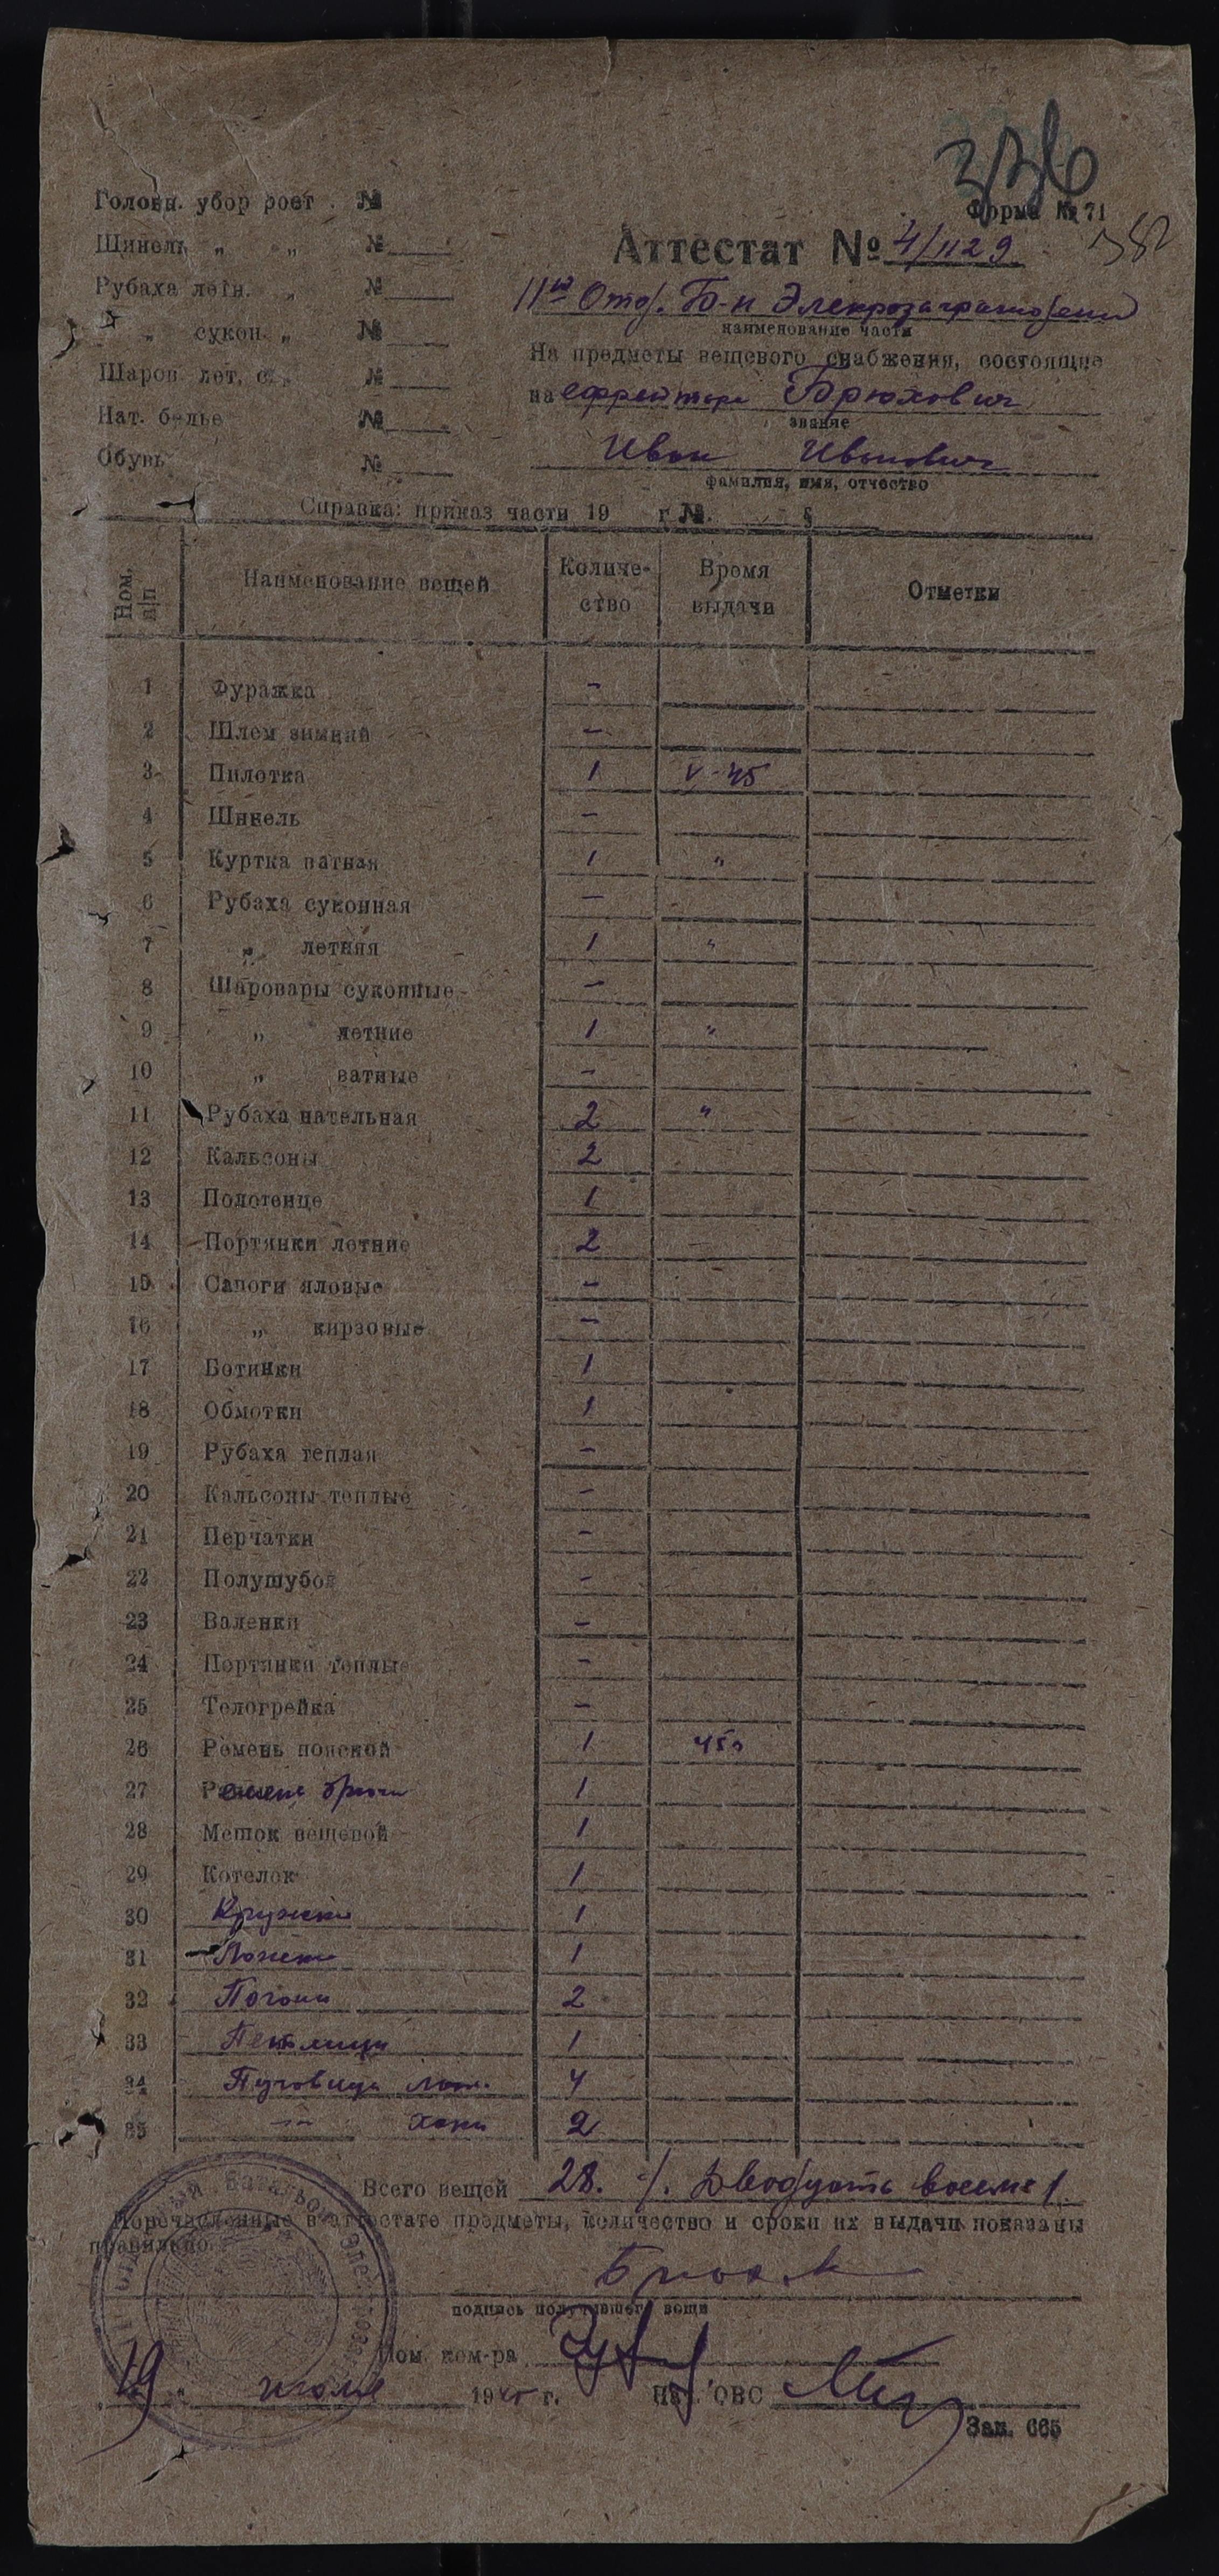 336
Головн. убор рост . №
Форма № 71
Шинель „ „ №
Аттестат № 4/1129. 382
Рубаха летн. „ №
11й Отд. Б-н Элекрозаграждени
„ сукон. „ №
наименование части
На предметы вещевого снабжения, состоящие
Шаров. лет, с. „ №
на ефрейтора Брюхович
Нат. белье №
звание
Обувь №
Иван Иванович
фамилия, имя, отчество
Справка: приказ части 19 г. №. §
Ном. п/п Наименование вещей Количество Время выдачи Отметки
1 Фуражка -
2 Шлем зимний -
3 Пилотка 1 V-45
4 Шинель -
5 Куртка ватная 1 „
6 Рубаха суконная -
7 „ летняя 1 „
8 Шаровары суконные -
9 „ летние 1 „
10 „ ватные -
11 Рубаха нательная 2 „
12 Кальсоны 2
13 Полотенце 1
14 Портянки летние 2
15 Сапоги яловые -
16 „ кирзовые -
17 Ботинки 1
18 Обмотки 1
19 Рубаха теплая -
20 Кальсоны теплые -
21 Перчатки -
22 Полушубок -
23 Валенки -
24 Портянки теплые -
25 Телогрейка -
26 Ремень поясной 1 45г
27 Ремень брючн 1
28 Мешок вещевой 1
29 Котелок 1
30 Кружка 1
31 Ложка 1
32 Погоны 2
33 Петлицы 1
34 Пуговицы лат. 4
35 -"- хаки 2
Всего вещей 28. /. Двадцать восемь /.
Перечисленные в аттестате предметы, количество и сроки их выдачи показаны
правильно.
подпись получившего вещи
Пом. ком-ра
19 июля 1945 г. Нач. ОВС
Зак. 665